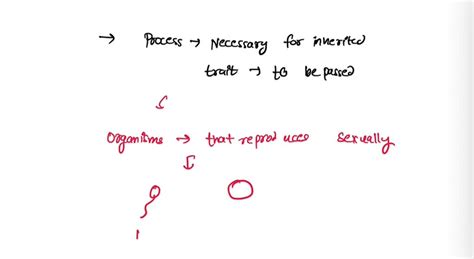 → Process → Necessary for inherited
trait → to be passed
Organisms → that reproduces sexually